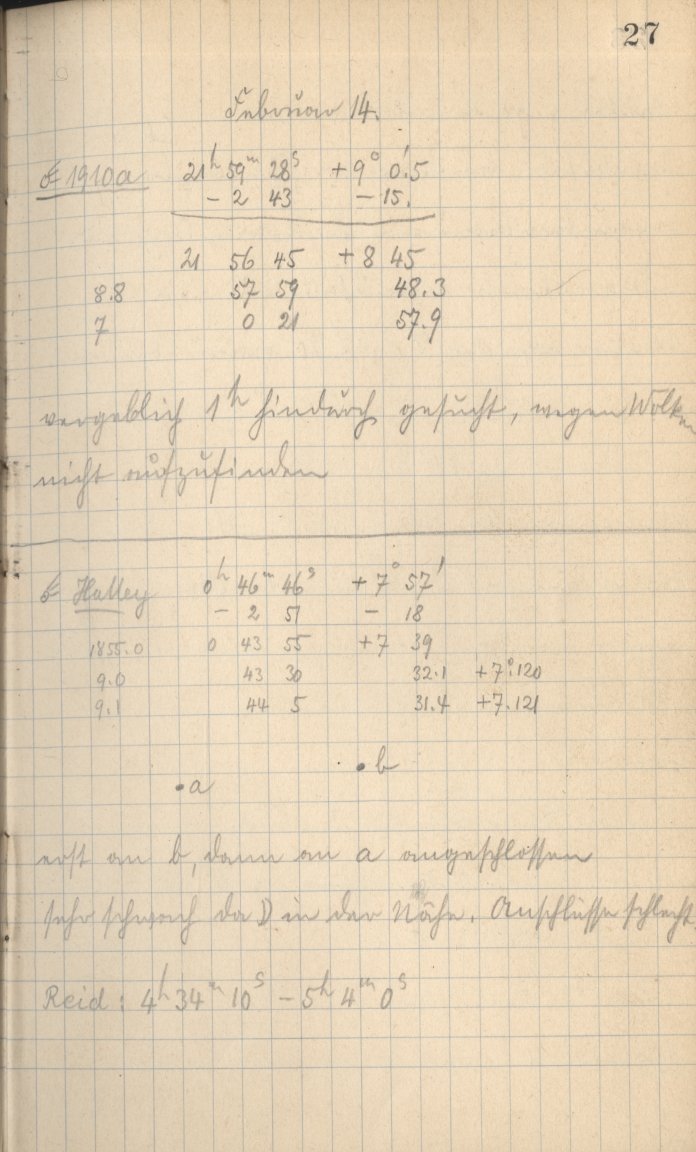 27
Februar 14.
☄ 1910a 21ʰ 59ᵐ 28ˢ +9° 0.'5
- 2 43 - 15.
21 56 45 +8 45
8.8 57 59 48.3
7 0 21 57.9
vergeblich 1ʰ hindurch gesucht, wegen Wolken
nicht aufzufinden
☄ Halley 0ʰ 46ᵐ 46ˢ +7° 57'
- 2 51 - 18
1855.0 0 43 55 +7 39
9.0 43 30 32.1 +7°.120
9.1 44 5 31.4 +7.121
• b
• a
erst an b, dann an a angeschlossen
sehr schwach da ☽ in der Nähe. Anschlüsse schlecht.
Reid: 4ʰ 34ᵐ 10ˢ - 5ʰ 4ᵐ 0ˢ